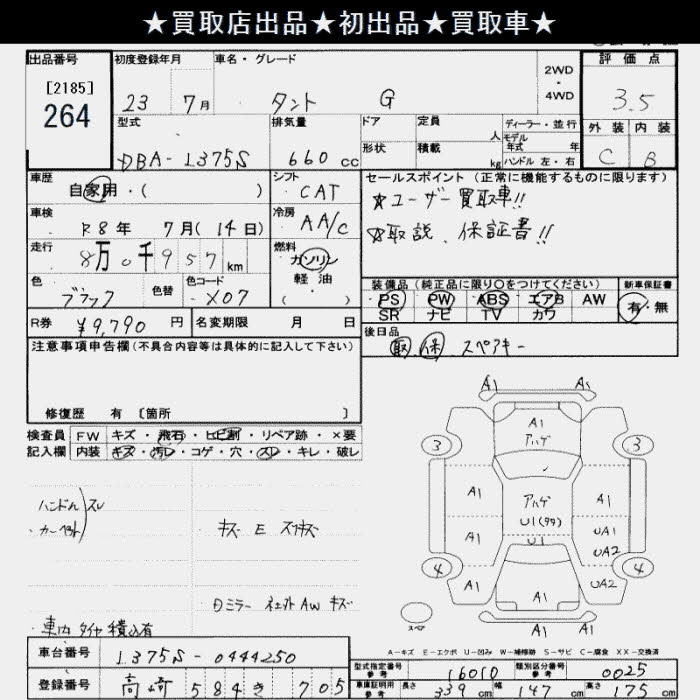 ★買取店出品★初出品★買取車★
出品番号
[2185]
264
初度登録年月
23 7月
車名・グレード
タント G
2WD
・
4WD
評価点
3.5
型式
DBA-L375S
排気量
660 cc
ドア
定員
人
形状
積載
kg
ディーラー・並行
モデル
年式 年
ハンドル 左・右
外装 内装
C B
車歴
自家用・( )
シフト
CAT
車検
R8年 7月(14日)
冷房
AA/C
走行
8万0千957km
燃料
ガソリン
軽油
( )
色
ブラック
色替
色コード
X07
セールスポイント(正常に機能するものに限ります)
★ユーザー買取車!!
★取説、保証書!!
装備品(純正品に限り〇をつけてください)
PS PW ABS エアB AW
SR ナビ TV カワ
新車保証書
有・無
R券 ¥9,790 円
名変期限 月 日
後日品
取 保 スペアキー
注意事項申告欄(不具合内容等は具体的に記入して下さい)
修復歴 有 〔箇所 〕
検査員
記入欄
FW キズ・飛石・ヒビ割・リペア跡・×要
内装 キズ・汚レ・コゲ・穴・スレ・キレ・破レ
ハンドル スレ
・カーペット
・キズ E スリキズ
ロミラー AW キズ
・車内 タイヤ積込有
A1 A1
A1
アハゲ
3 3
A1 アハゲ A1
U1(99)
A1 U1 UA1
UA2
4 4
A1 A1 UA2
スペア
A1 A1
A-キズ E-エクボ U-凹み W-補修跡 S-サビ C-腐食 XX-交換済
車台番号 L375S-0444250
登録番号 高崎 584 き 705
型式指定番号
参考
16010
類別区分番号
参考
0025
車庫証明用
参考
長さ 339cm 幅 147cm 高さ 175cm